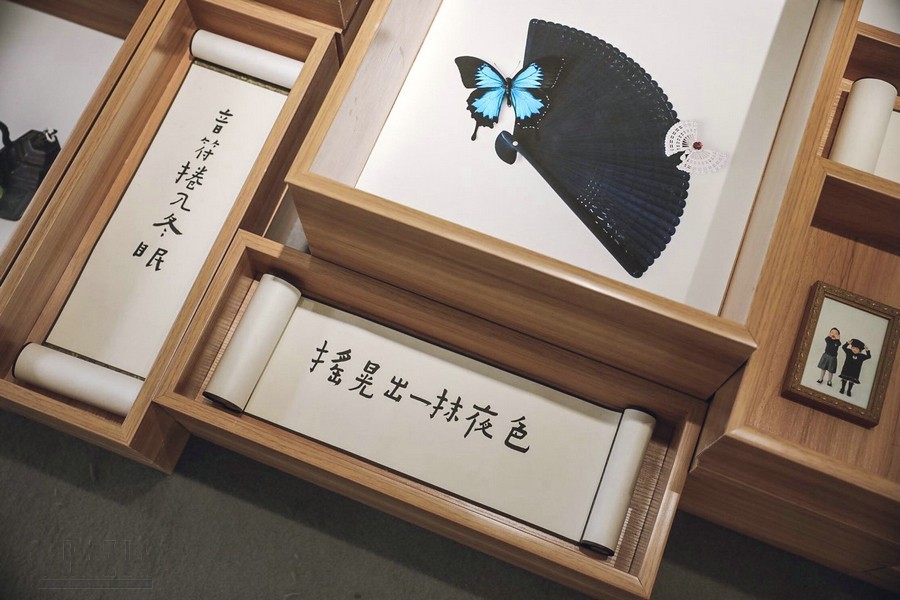 音符捲入冬眠
搖晃出一抹夜色